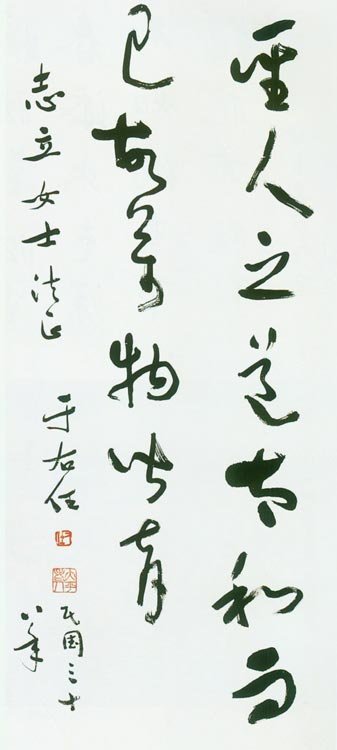 聖人之道太和而
已故萬物皆育
志立女士法正
于右任
民国三十
八年